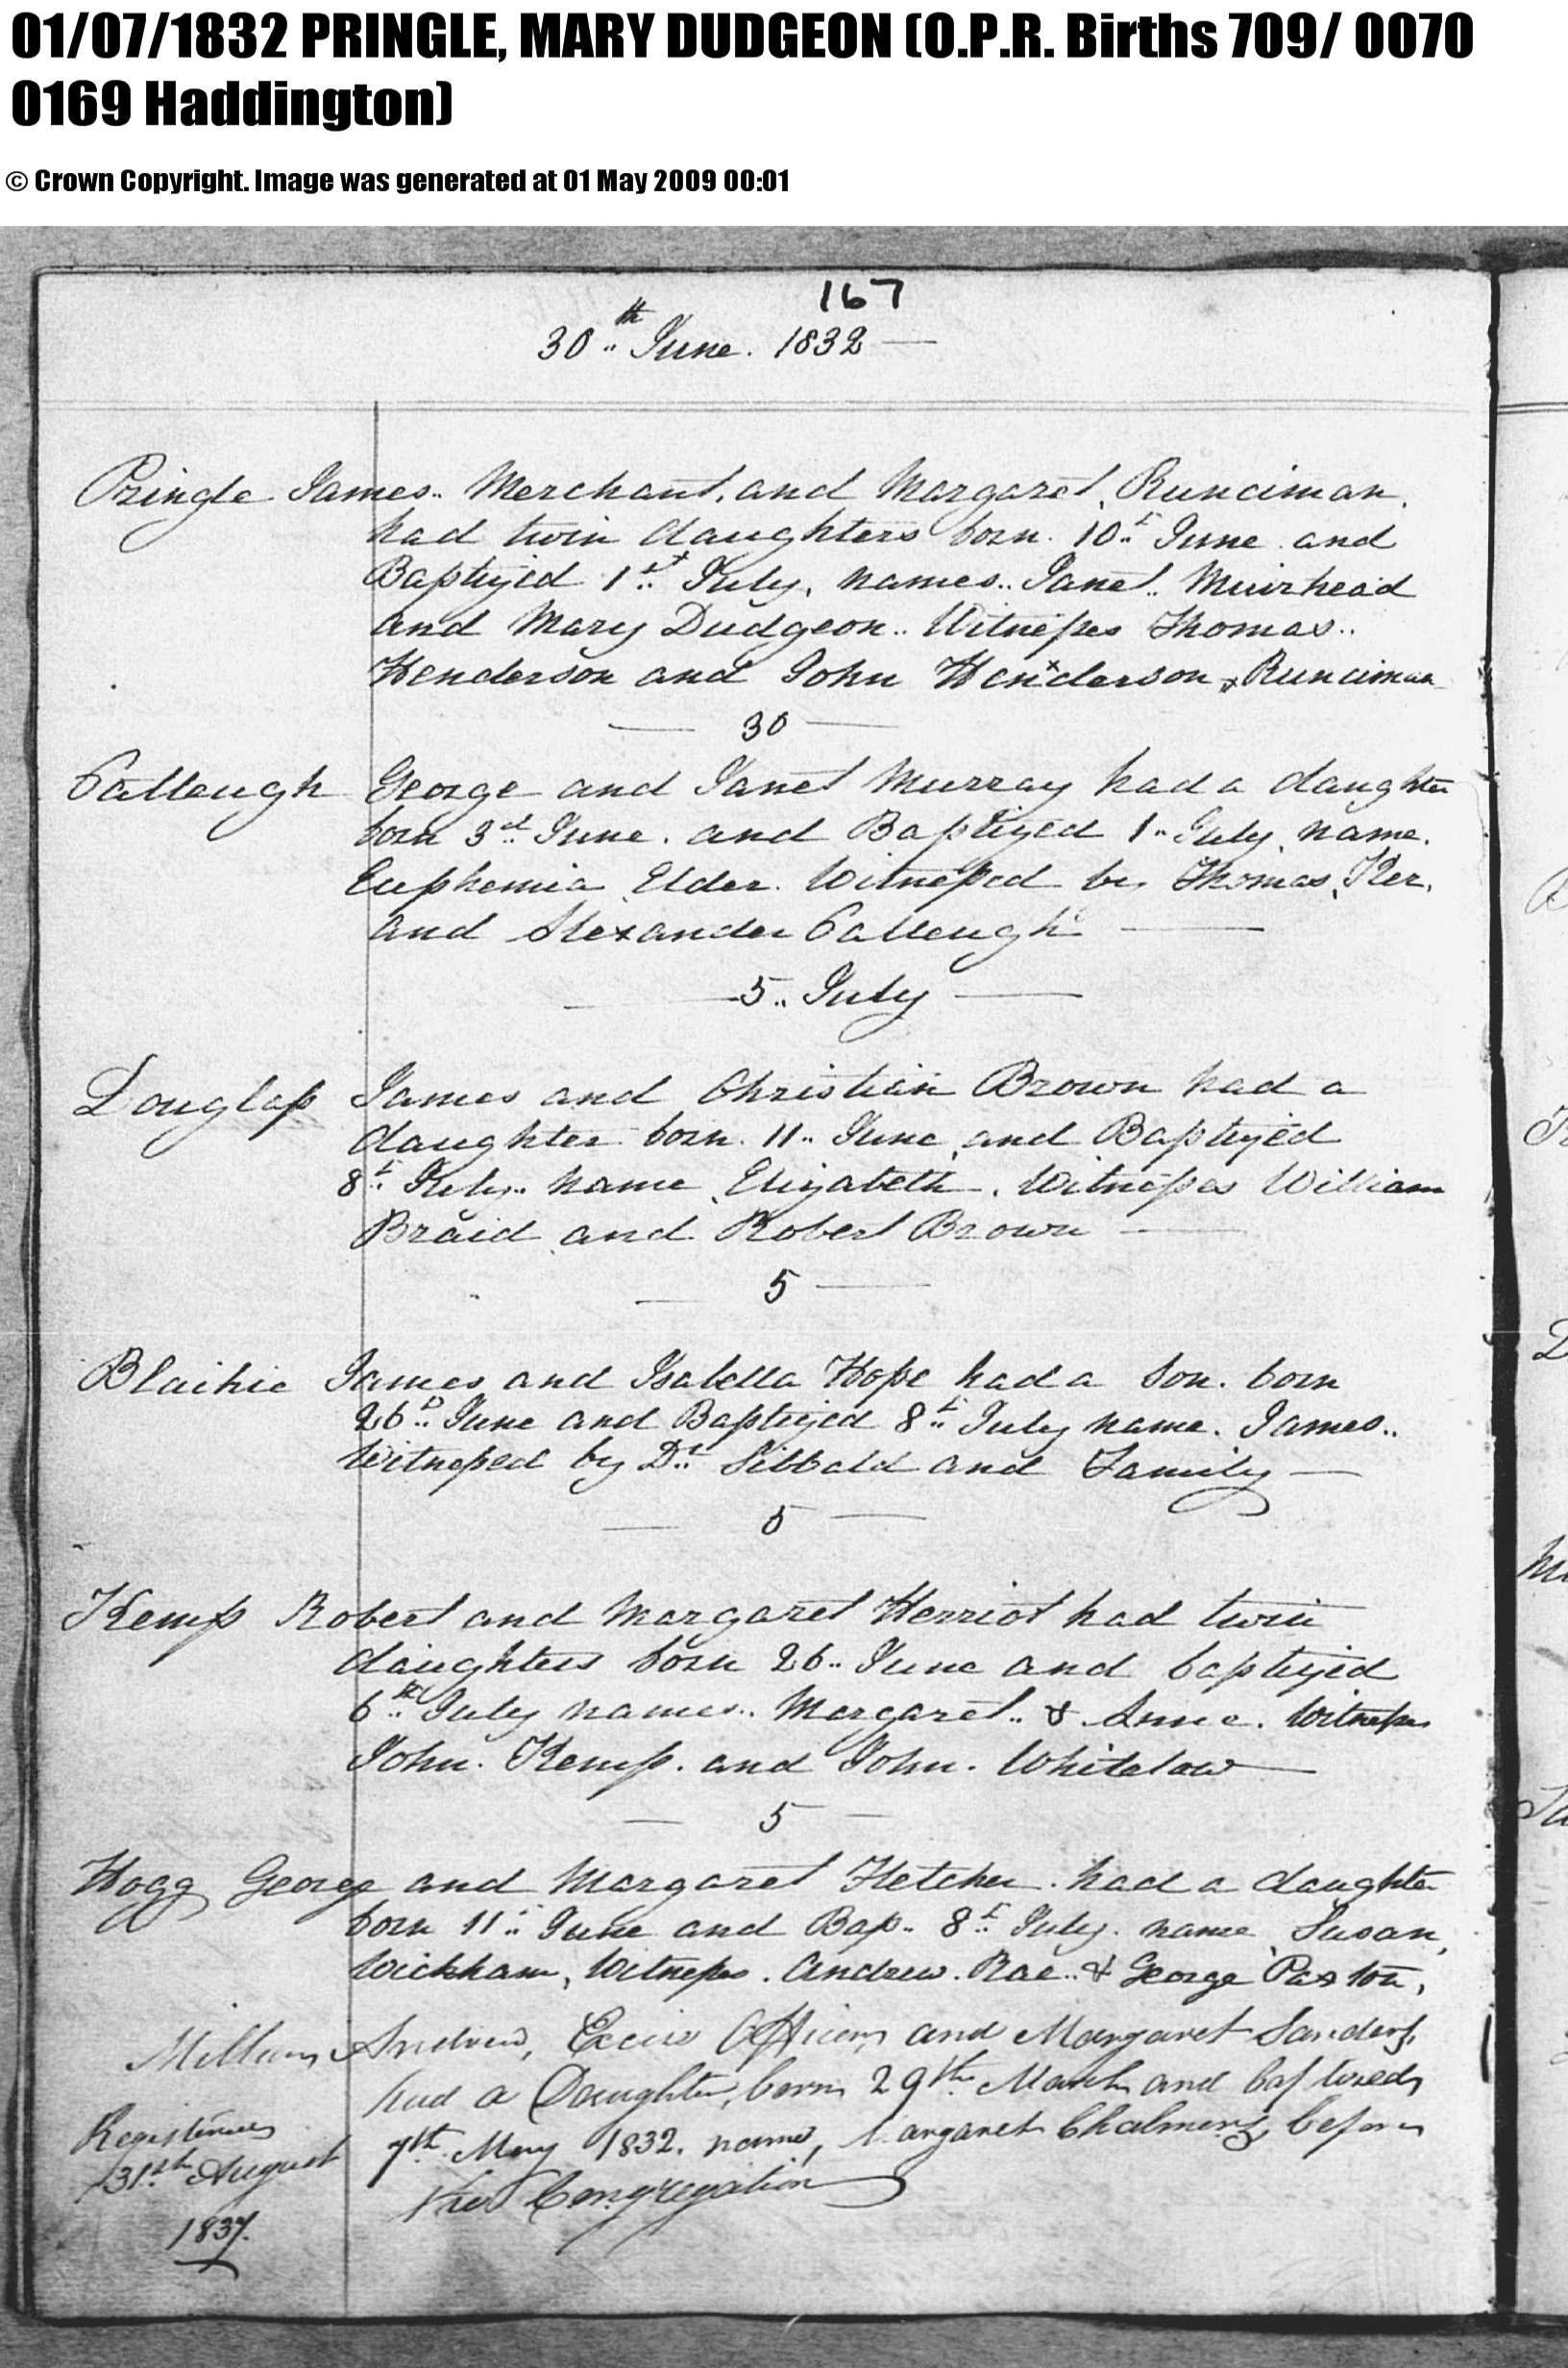 01/07/1832 PRINGLE, MARY DUDGEON (O.P.R. Births 709/ 0070
0169 Haddington)
© Crown Copyright. Image was generated at 01 May 2009 00:01
167
30th June. 1832
Pringle James.. Merchant, and Margaret Runciman.
had twin daughters born. 10th June and
Baptized 1st July, names.. Janet.. Muirhead
and Mary Dudgeon.. Witnesses Thomas..
Henderson and John Henderson x Runciman
30
George and Janet Murray had a daughter
born 3d June. and Baptized 1.. July. name.
Euphemia Elder. Witnessed by Thomas Ker.
and Alexander
5.. July
Douglass James and Christian Brown had a
daughter born. 11.. June and Baptized
8t July.. name Elizabeth. Witnesses William
Braid and Robert Brown
5
Blaikie James and Isabella Hope had a Son. born
26 June and Baptized 8t July name. James..
Witnessed by Dr Sibbald and Family
5
Kemp Robert and Margaret Herriot had twin
daughters born 26.. June and baptized
6th July names.. Margaret.. & Anne. Witnesses
John. Kemp. and John. Whitelaw
5
Hogg George and Margaret Fletcher. had a daughter
born 11.. June and Bap.. 8t July. name Susan
Wickham, Witnesses. Andrew. Rae.. & George Paxton,
Andrew, Officer, and Margaret Sanders,
had a Daughter, born 29th March and baptized
7th May 1832. name, Margaret Chalmers, before
the Congregation
Registered
31st August
1837.